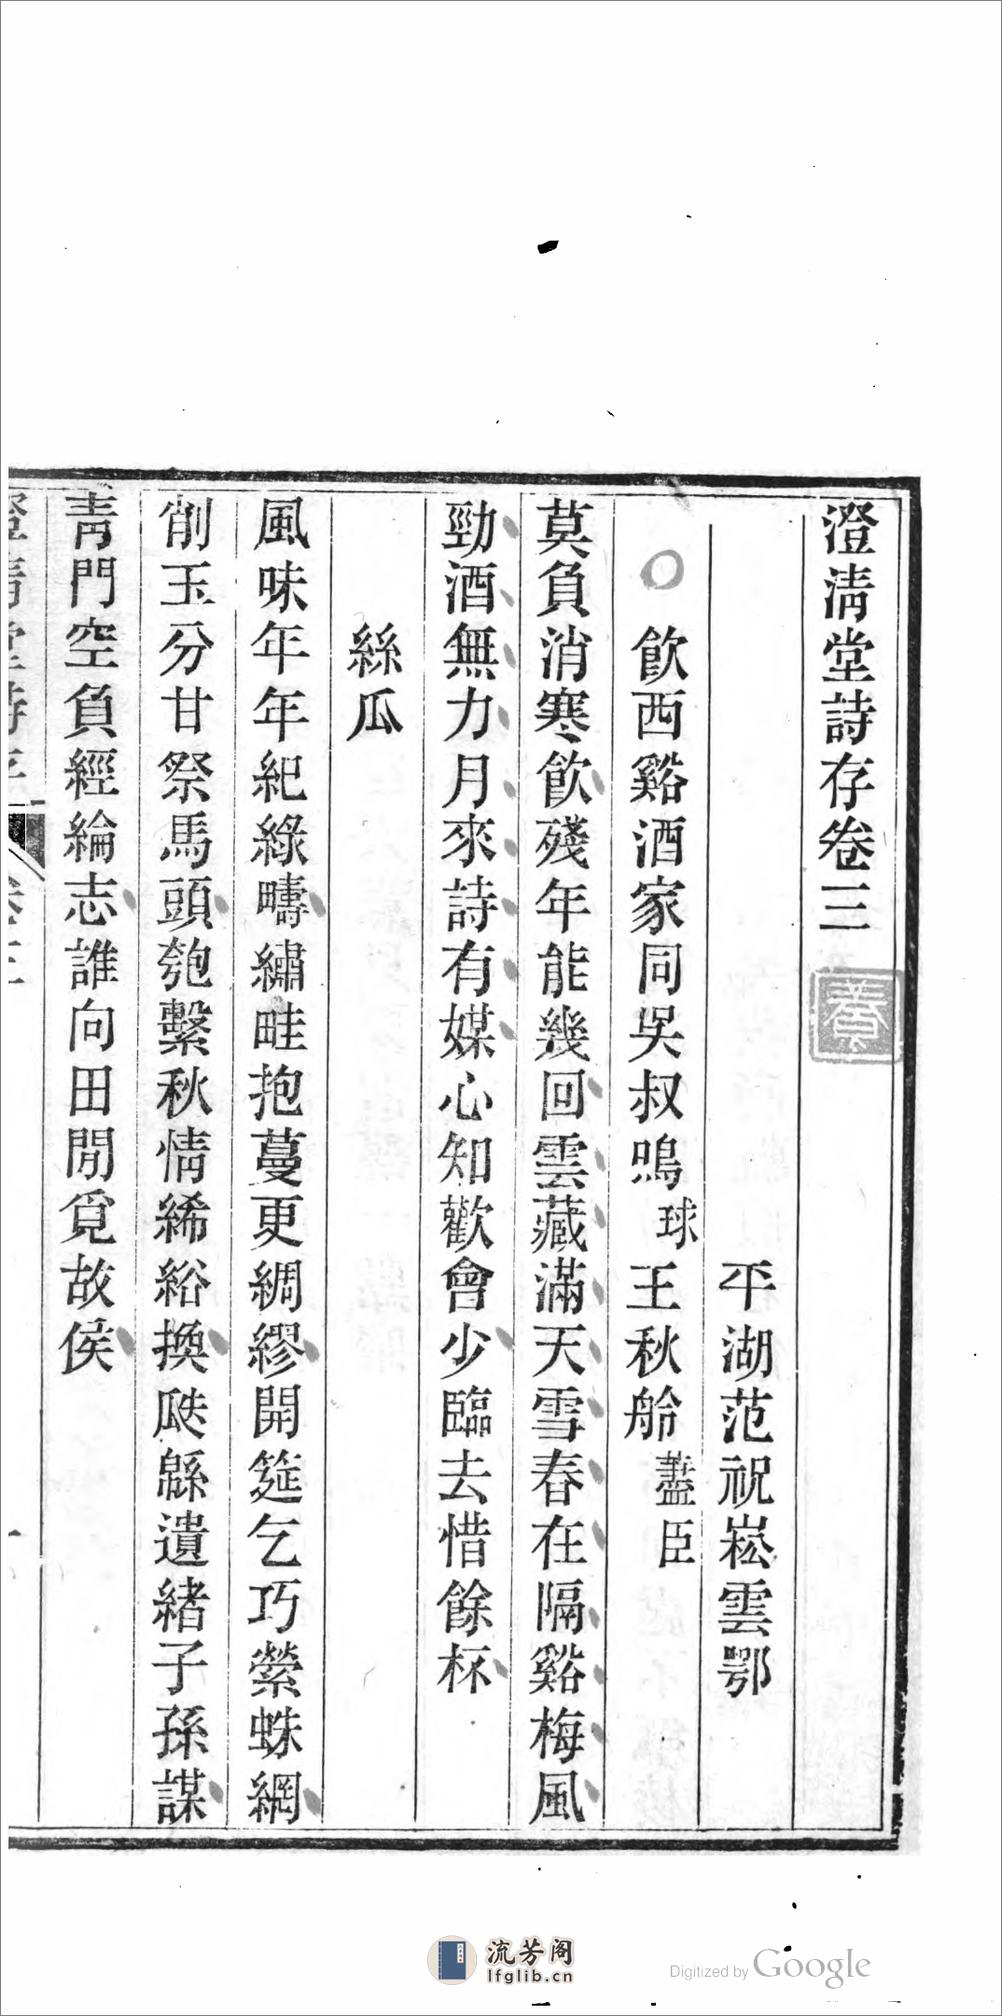 澄清堂詩存卷三
平湖范祝崧雲鄂
飮西谿酒家同吳叔鳴球王秋舲藎臣
莫負消寒飮殘年能幾回雲藏滿天雪春在隔谿梅風
勁酒無力月來詩有媒心知歡會少臨去惜餘杯
絲瓜
風味年年紀綠疇繡畦抱蔓更綢繆開筵乞巧縈蛛網
削玉分甘祭馬頭匏繫秋情絺綌換瓞緜遺緖子孫謀
靑門空負經綸志誰向田閒覓故侯
流芳阁
lfglib.cn
Digitized by Google